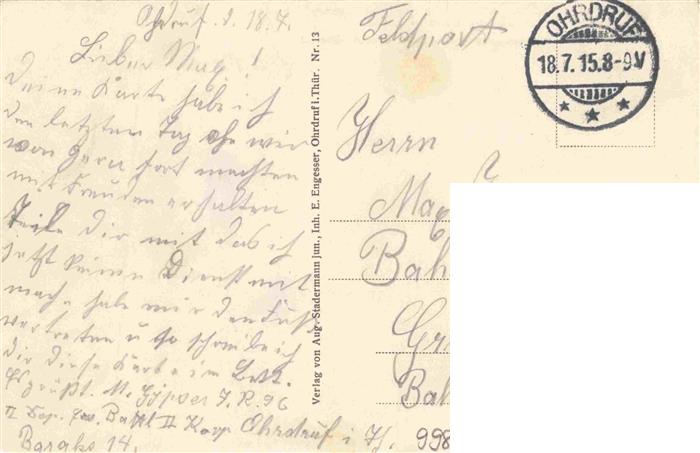 Ohdruf. d. 18.7.
Lieber Max!
Deine Karte habe ich
den letzten Tag ehe wir
von Gera fort machten
mit Freuden erhalten
Teile Dir mit das ich
jetzt keinen Dienst mit
mache habe mir den Fuß
vertreten u so schreibe ich
Dir diese Karte im Bett.
Es grüßt. M. J. R. 96
II Batl II Korp Ohrdruf i Th.
Barake 14.
Verlag von Aug. Stadermann jun., Inh. E. Engesser, Ohrdruf i. Thür. Nr. 13
Feldpost
OHRDRUF
18.7.15.8-9V
Herrn
Ma
Bah
Gr
Bah
998